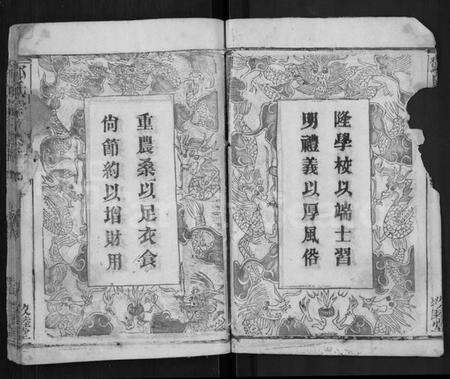 隆學校以端士習
明禮義以厚風俗
重農桑以足衣食
尙節約以增財用